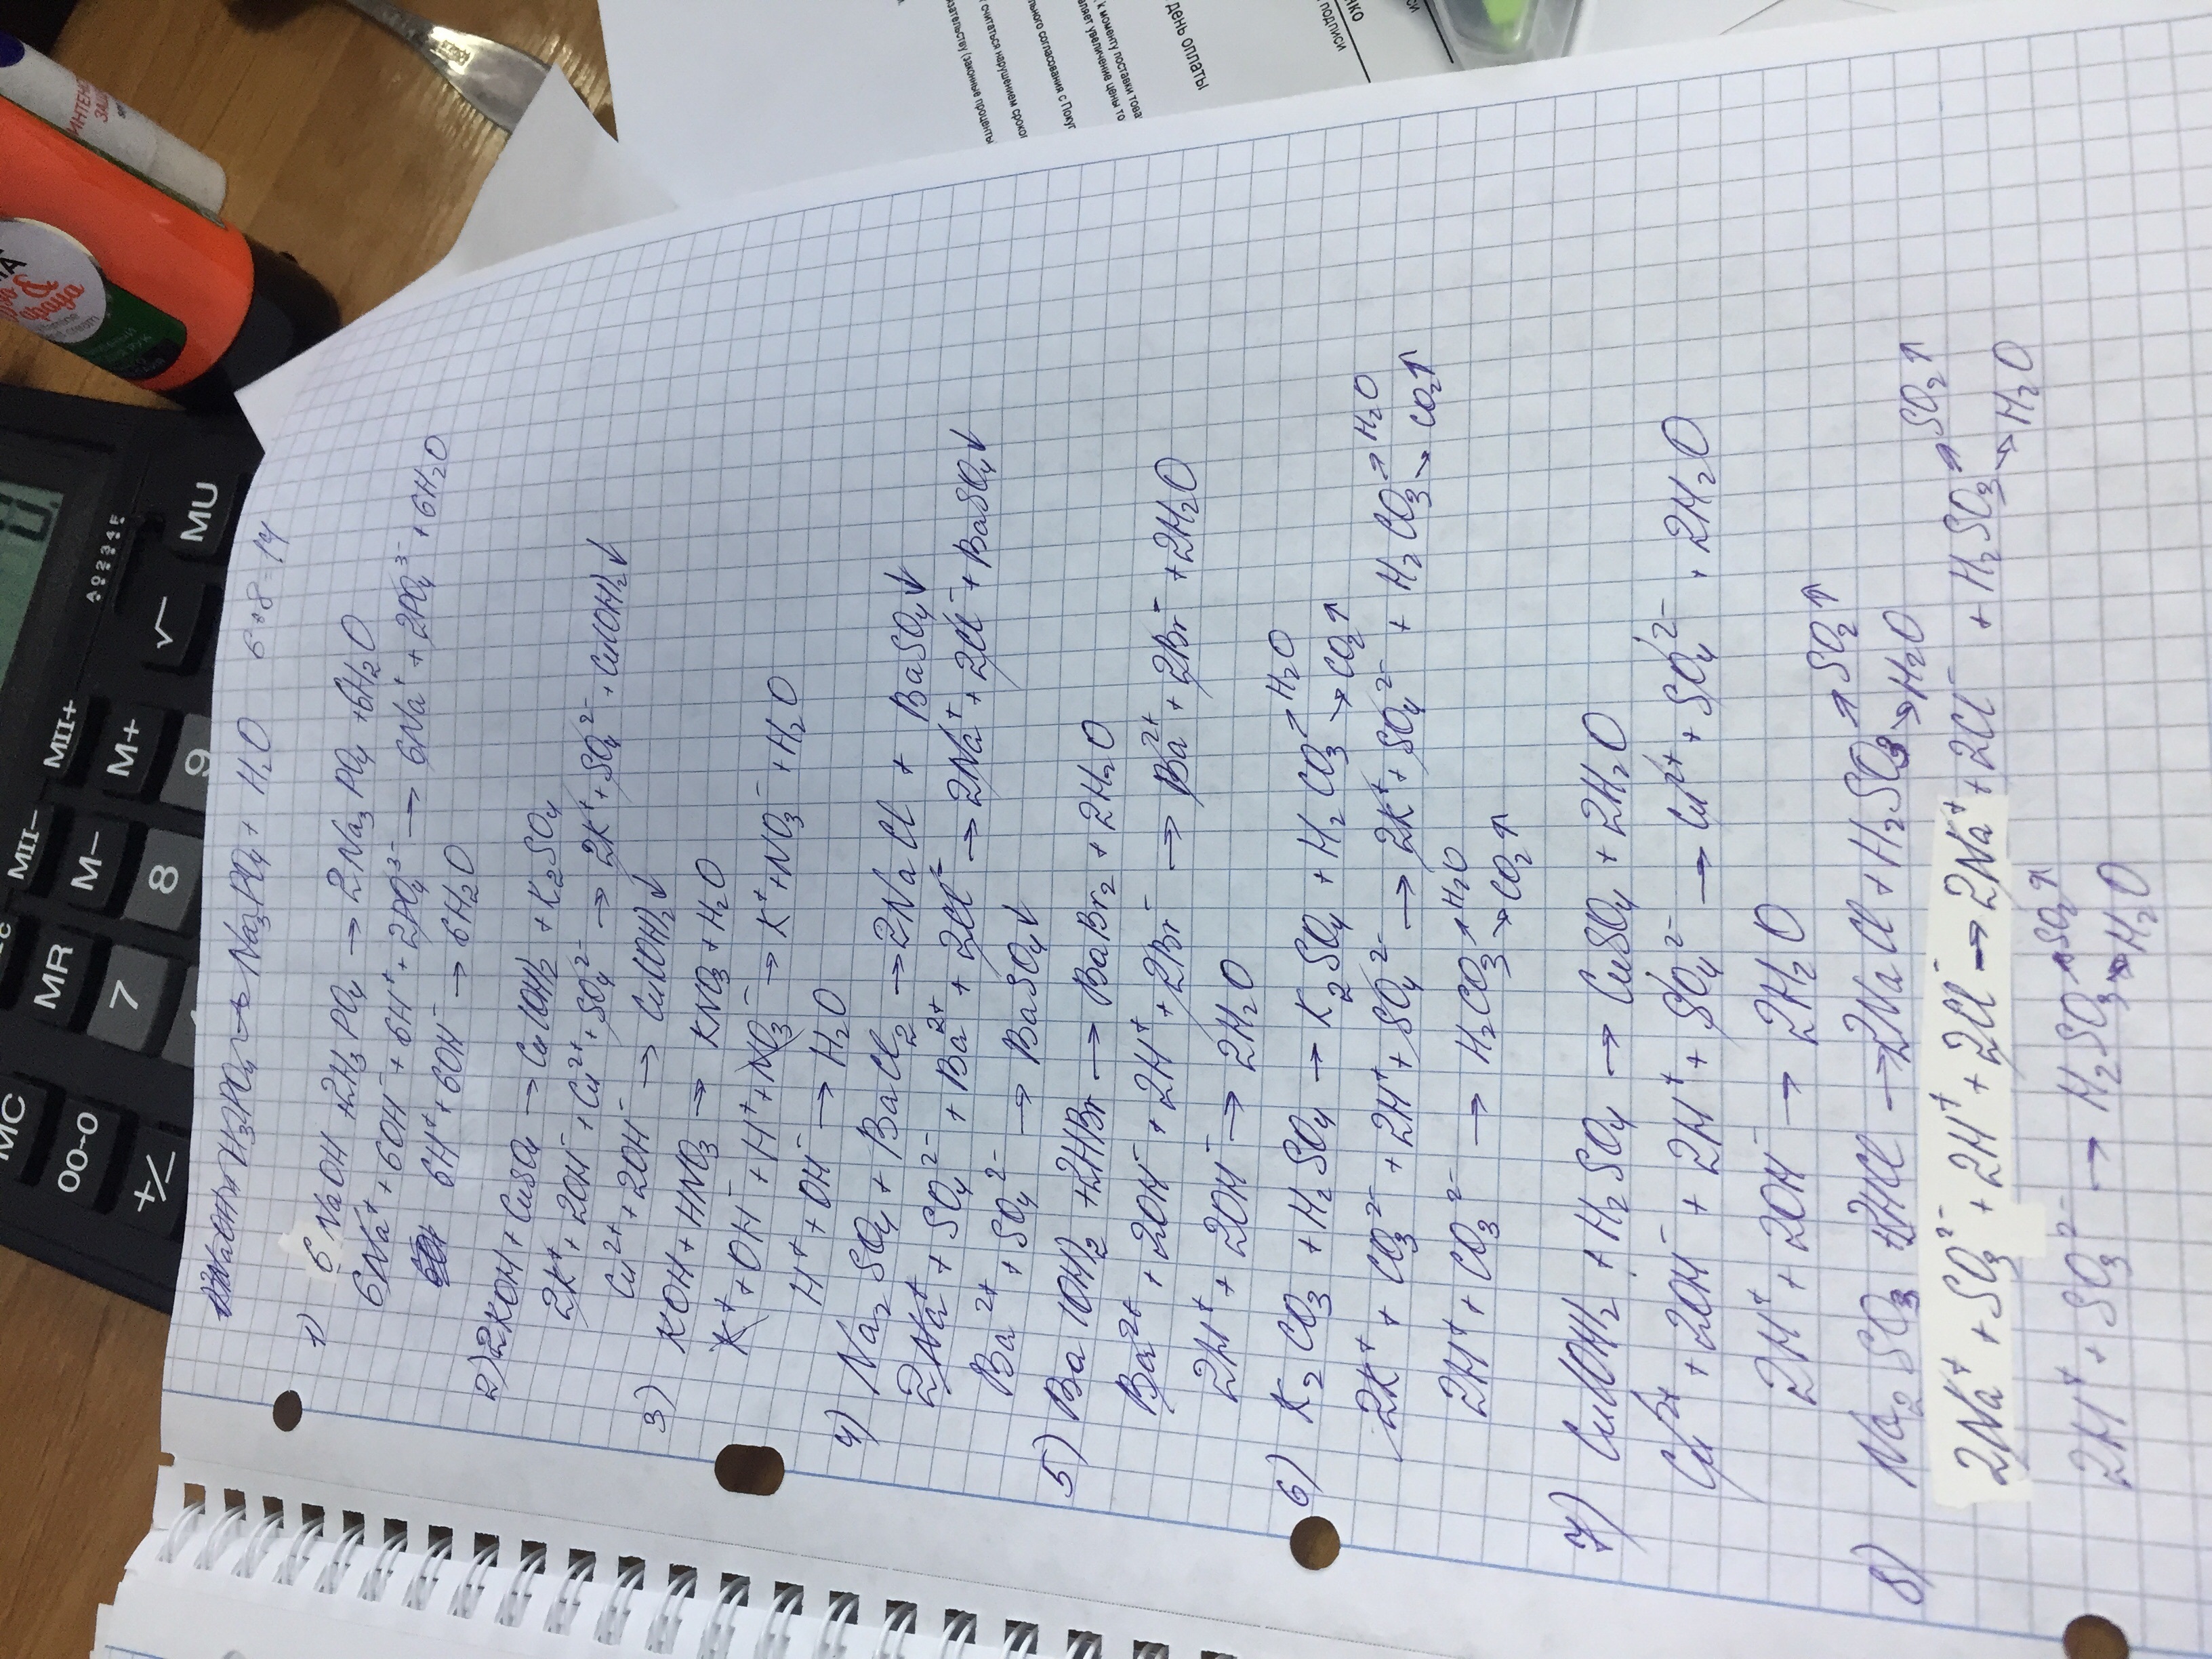 + H₃PO₄ → Na₃PO₄ + H₂O 6+8=14
1) 6NaOH + 2H₃PO₄ → 2Na₃PO₄ + 6H₂O
6Na⁺ + 6OH⁻ + 6H⁺ + 2PO₄³⁻ → 6Na⁺ + 2PO₄³⁻ + 6H₂O
6H⁺ + 6OH⁻ → 6H₂O
2) 2KOH + CuSO₄ → Cu(OH)₂ + K₂SO₄
2K⁺ + 2OH⁻ + Cu²⁺ + SO₄²⁻ → 2K⁺ + SO₄²⁻ + Cu(OH)₂↓
Cu²⁺ + 2OH⁻ → Cu(OH)₂↓
3) KOH + HNO₃ → KNO₃ + H₂O
K⁺ + OH⁻ + H⁺ + NO₃⁻ → K⁺ + NO₃⁻ + H₂O
H⁺ + OH⁻ → H₂O
4) Na₂SO₄ + BaCl₂ → 2NaCl + BaSO₄↓
2Na⁺ + SO₄²⁻ + Ba²⁺ + 2Cl⁻ → 2Na⁺ + 2Cl⁻ + BaSO₄↓
Ba²⁺ + SO₄²⁻ → BaSO₄↓
5) Ba(OH)₂ + 2HBr → BaBr₂ + 2H₂O
Ba²⁺ + 2OH⁻ + 2H⁺ + 2Br⁻ → Ba²⁺ + 2Br⁻ + 2H₂O
2H⁺ + 2OH⁻ → 2H₂O
6) K₂CO₃ + H₂SO₄ → K₂SO₄ + H₂CO₃ ↗ H₂O ↘ CO₂↑
2K⁺ + CO₃²⁻ + 2H⁺ + SO₄²⁻ → 2K⁺ + SO₄²⁻ + H₂CO₃ ↗ H₂O ↘ CO₂↑
2H⁺ + CO₃²⁻ → H₂CO₃ ↗ H₂O ↘ CO₂↑
7) Cu(OH)₂ + H₂SO₄ → CuSO₄ + 2H₂O
Cu²⁺ + 2OH⁻ + 2H⁺ + SO₄²⁻ → Cu²⁺ + SO₄²⁻ + 2H₂O
2H⁺ + 2OH⁻ → 2H₂O
8) Na₂SO₃ + 2HCl → 2NaCl + H₂SO₃ ↗ SO₂↑ ↘ H₂O
2Na⁺ + SO₃²⁻ + 2H⁺ + 2Cl⁻ → 2Na⁺ + 2Cl⁻ + H₂SO₃ ↗ SO₂↑ ↘ H₂O
2H⁺ + SO₃²⁻ → H₂SO₃ ↗ SO₂↑ ↘ H₂O
MC
MR
M-
M+
MII-
MII+
MU
√
00-0
+/-
7
8
9
день оплаты
подписи